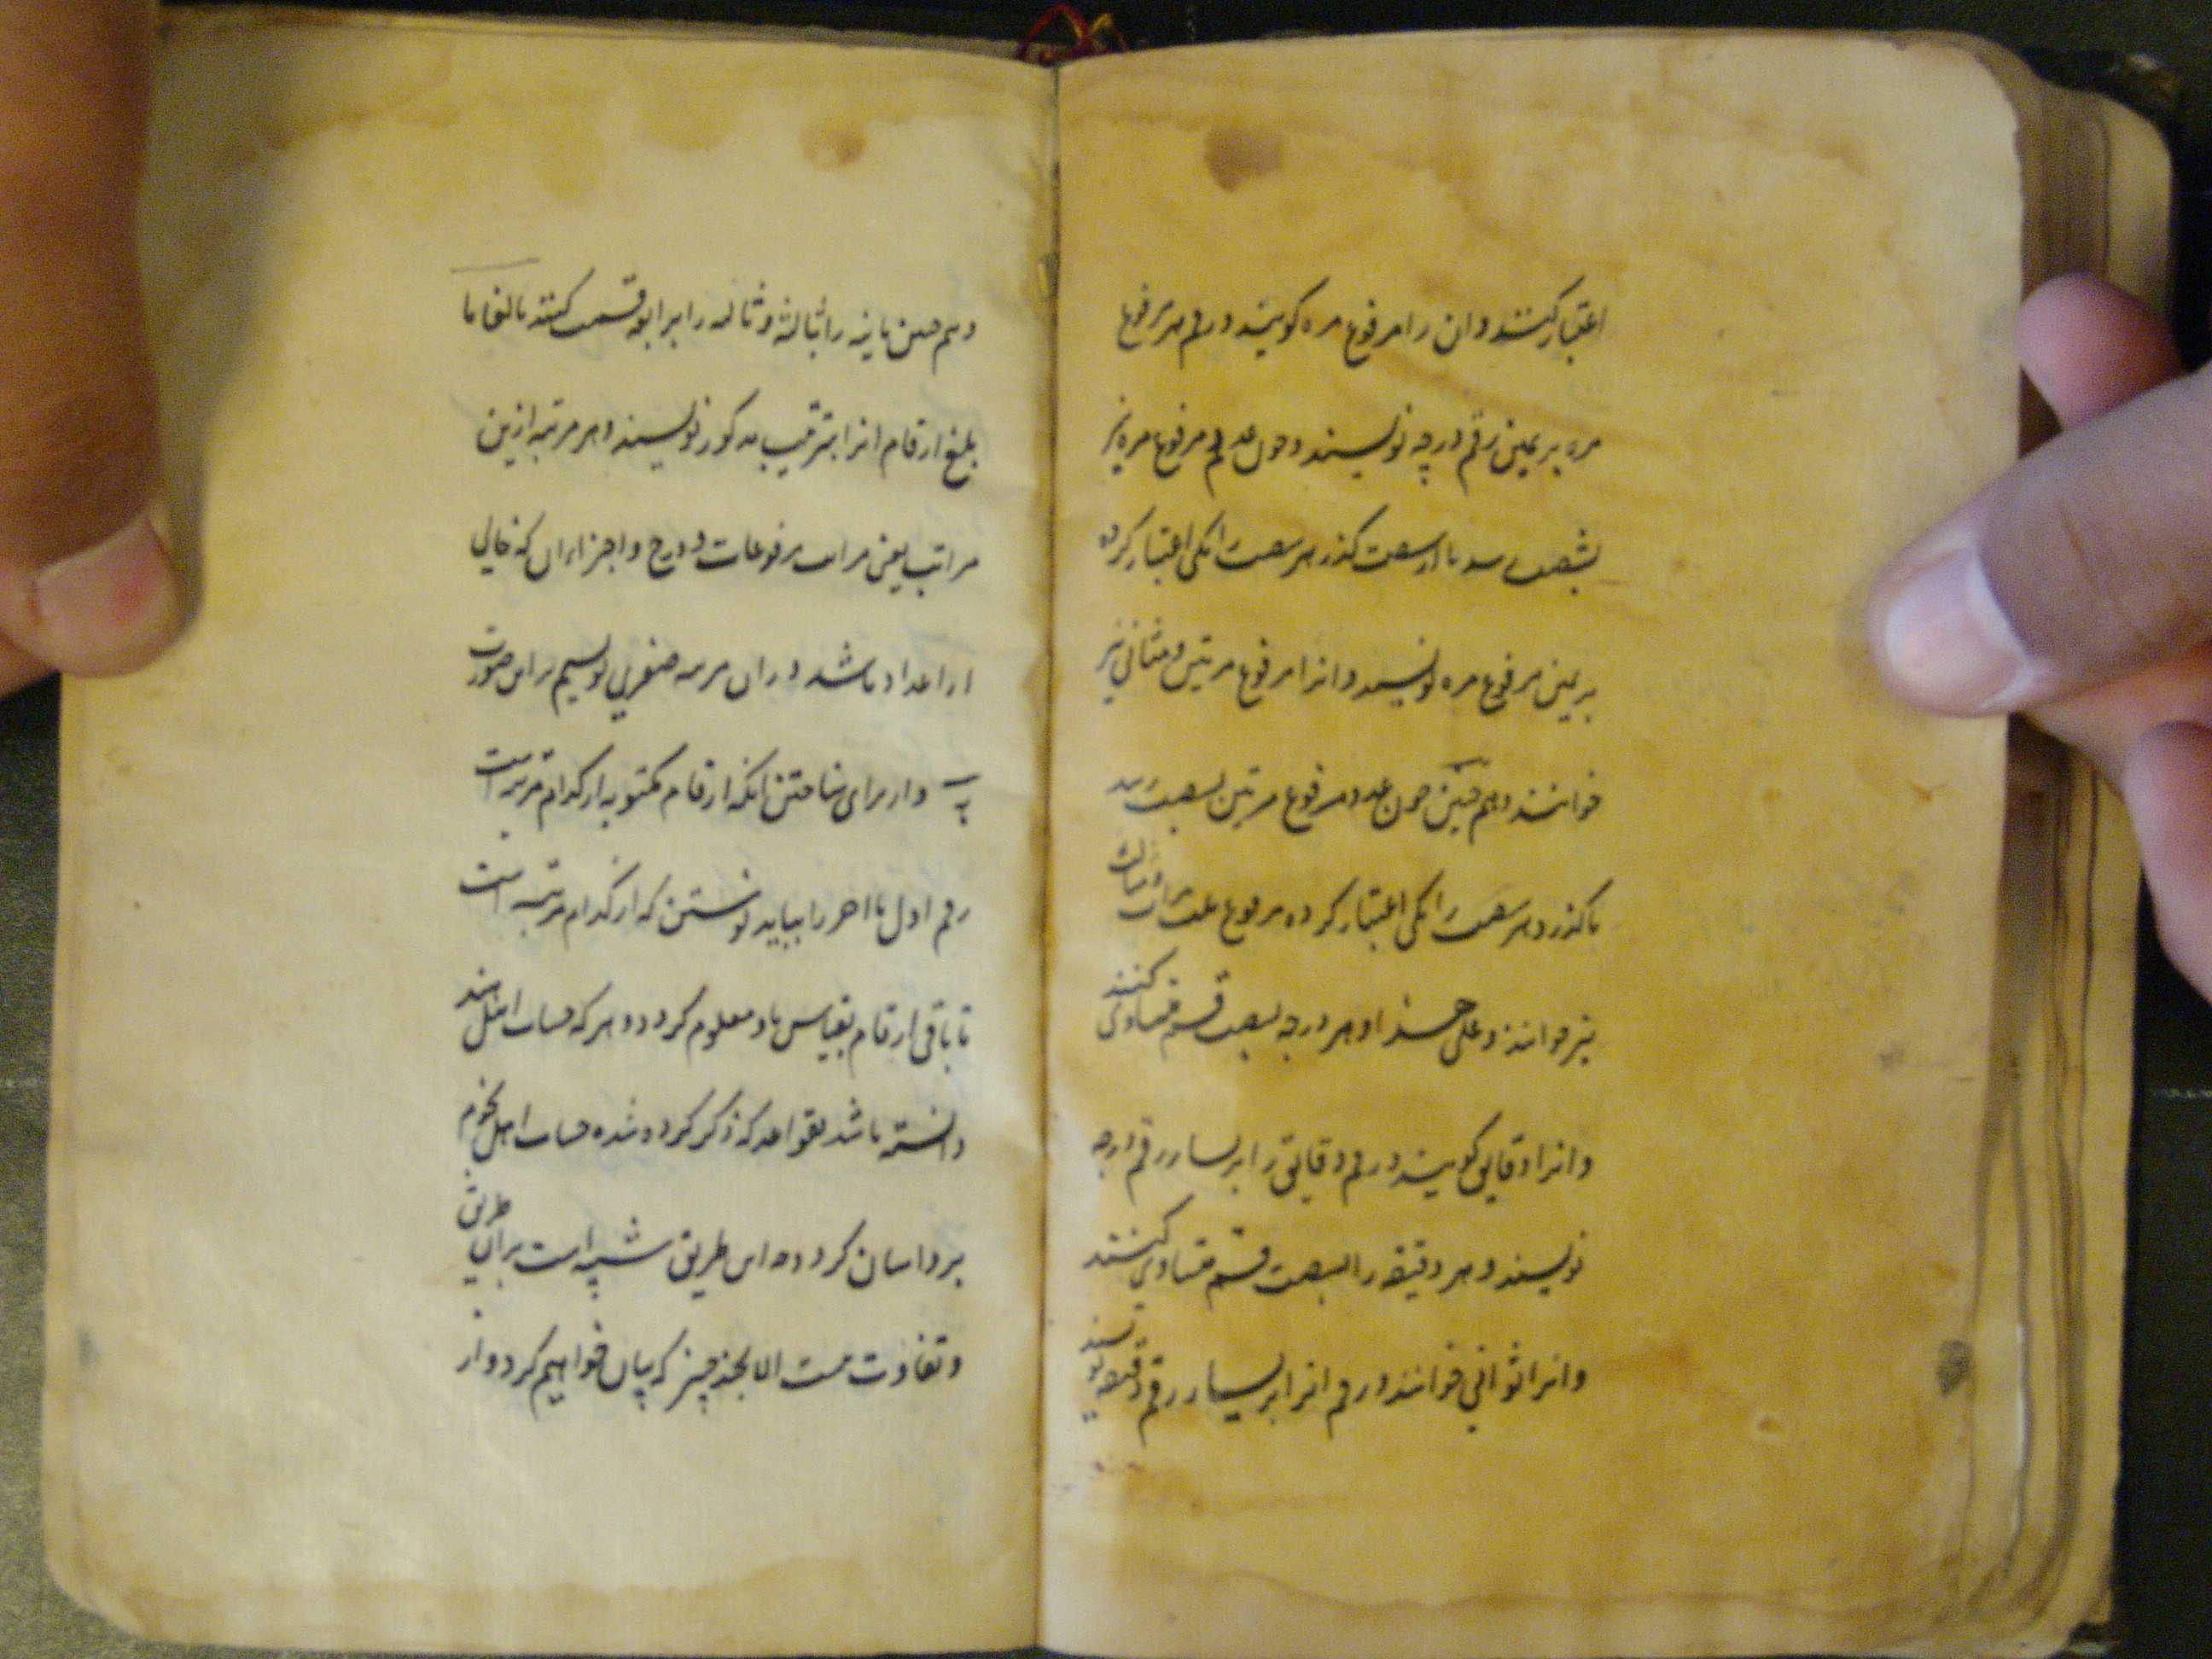 اعتبار کنند وان را مرفوع مره کویند و رقم مرفوع
مره بر یمین رقم درجه نویسند و چون عدد مرفوع مره نیز
بشصت رسد یا از شصت کذرد هر شصت را یکی اعتبار کرده
بر یمین مرفوع مره نویسند و انرا مرفوع مرتین و مثانی نیز
خوانند و هم چنین چون عدد مرفوع مرتین بشصت رسد
یا کذرد هر شصت را یکی اعتبار کرده مرفوع ثلث مرات و مثالث
نیز خوانند و علی هذا و هر درجه بشصت قسم متساوی کنند
و انرا دقایق کویند و رقم دقایق را بر یسار رقم درجه
نویسند و هر دقیقه را بشصت قسم متساوی کنند
و انرا ثوانی خوانند و رقم انرا بر یسار رقم دقیقه نویسند
و هم چنین ثانیه را بثالثه و ثالثه را برابعه قسمت کنند بالغا ما
بلغ ارقام انرا بترتیب مذکور نویسند و هر مرتبه ازین
مراتب یعنی مراتب مرفوعات و درج و اجزاء ان که خالی
از اعداد باشد در ان مرتبه صفری نویسیم براین صورت
و از برای شناختن انکه ارقام مکتوبه از کدام مرتبه است
رقم اول یا اخر را بباید نوشتن که از کدام مرتبه است
تا باقی ارقام بقیاس باو معلوم کردد و هر که حساب اهل هند
دانسته باشد بقواعد که ذکر کرده شده حساب اهل نجوم
برو اسان کردد چه این طریق شبیه است بران طریق
و تفاوت نیست الا بچند چیز که بیان خواهیم کرد و از